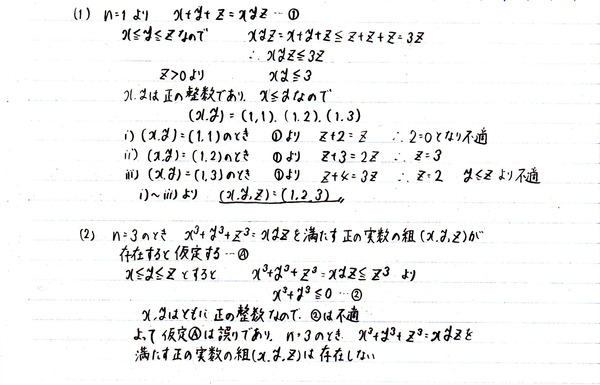 (1) n=1 より x+y+z=xyz …①
x≦y≦z なので xyz=x+y+z≦z+z+z=3z
∴xyz≦3z
z>0より xy≦3
x.yは正の整数であり、x≦yなので
(x.y)=(1,1).(1.2).(1.3)
i) (x.y)=(1,1)のとき ①より z+2=z ∴2=0となり不適
ii) (x.y)=(1.2)のとき ①より z+3=2z ∴z=3
iii) (x.y)=(1.3)のとき ①より z+4=3z ∴z=2 y≦zより不適
i)~iii)より (x.y,z)=(1.2.3)
(2) n=3のとき x³+y³+z³=xyzを満たす正の実数の組(x.y.z)が
存在すると仮定する…Ⓐ
x≦y≦zとすると x³+y³+z³=xyz≦z³ より
x³+y³≦0 …②
x.yはともに正の整数なので、②は不適
よって仮定Ⓐは誤りであり、n=3のとき x³+y³+z³=xyzを
満たす正の実数の組(x.y.z)は存在しない